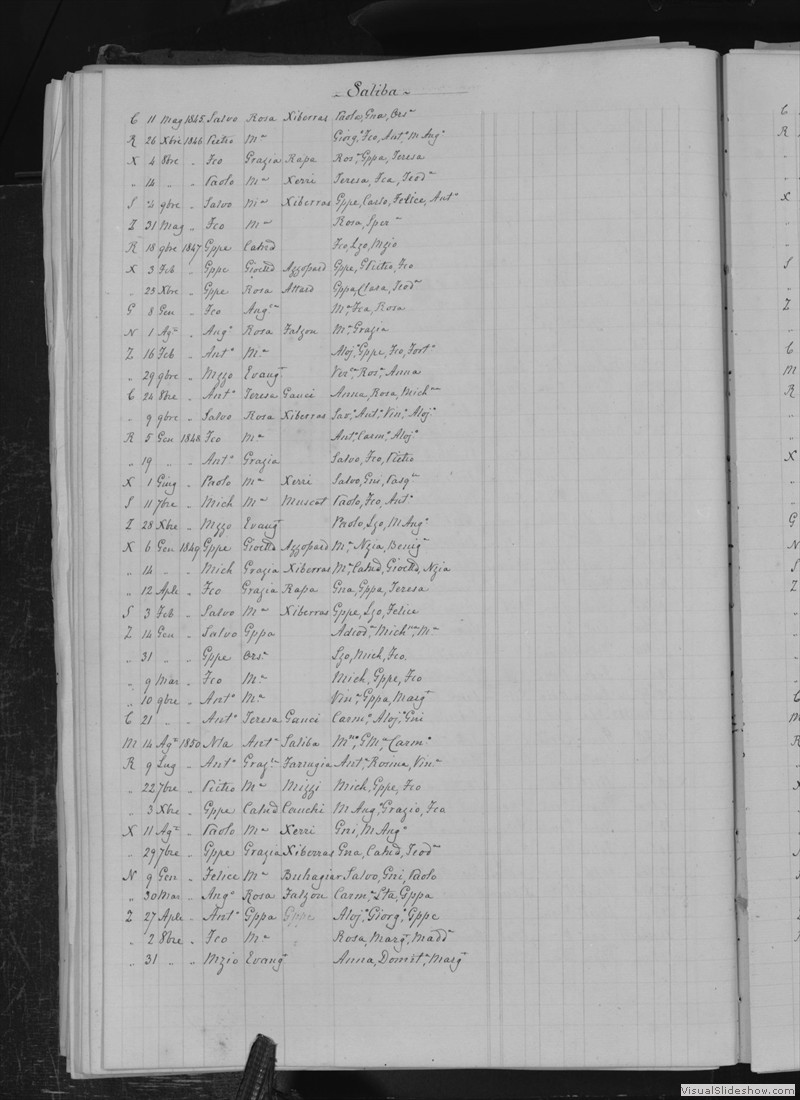 ~ Saliba ~
C 11 Mag 1845 Salvo Rosa Xiberras Paolo, Gna, Ors.ª
R 26 Xbre 1846 Pietro M.ª Giorg.º Fco, Ant.º M Ang.ª
X 4 8bre „ Fco Grazia Rapa Ros.ª Gppa, Teresa
„ 14 „ „ Paolo M.ª Xerri Teresa, Fca, Teod.ª
S 4 9bre „ Salvo M.ª Xiberras Gppe, Carlo, Felice, Ant.º
Z 31 Mag „ Fco M.ª Rosa, Sper.ª
R 18 9bre 1847 Gppe Catnd Fco, Lzo, Mzio
X 3 Feb „ Gppe Gioetta Azzopard Gppe, Pietro, Fco
„ 23 Xbre „ Gppe Rosa Attard Gppa, Clara, Teod.ª
G 8 Gen „ Fco Ang.ca M.ª Fca, Rosa
N 1 Ag.º „ Ang.º Rosa Falzon M.ª Grazia
Z 16 Feb „ Ant.º M.ª Aloj.º Gppe, Fco, Fort.º
„ 29 9bre „ Mzzo Evang.ª Ver.ca Ros.ª Anna
C 24 8bre „ Ant.º Teresa Gauci Anna, Rosa, Mich.na
„ 9 9bre „ Salvo Rosa Xiberras Sav.º Ant.º Vin.º Aloj.º
R 5 Gen 1848 Fco M.ª Ant.º Carm.º Aloj.º
„ 19 „ „ Ant.º Grazia Salvo, Fco, Pietro
X 1 Giug „ Paolo M.ª Xerri Salvo, Gni, Pasq.e
S 11 7bre „ Mich M.ª Muscat Paolo, Fco, Ant.º
Z 28 Xbre „ Mzzo Evang.ª Paolo, Lzo, M Ang.º
X 6 Gen 1849 Gppe Gioetta Azzopard M.ª Nzia, Benig.ª
„ 14 „ „ Mich Grazia Xiberras M.ª Catnd, Gioetta, Nzia
„ 12 Aple „ Fco Grazia Rapa Gna, Gppa, Teresa
S 3 Feb „ Salvo M.ª Xiberras Gppe, Lzo, Felice
Z 14 Gen „ Salvo Gppa Adeod.ª Mich.na M.ª
„ 31 „ Gppe Ors.ª Lzo, Mich, Fco
„ 9 Mar „ Fco M.ª Mich, Gppe, Fco
„ 10 9bre „ Ant.º M.ª Vin.ª Gppa, Marg.ª
C 21 „ „ Ant.º Teresa Gauci Carm.º Aloj.º Gni
M 14 Ag.º 1850 Nla Ant.ª Saliba M.no G M.ª Carm.º
R 9 Lug „ Ant.º Graz.la Farrugia Ant.ª Rosina, Vin.ª
„ 22 7bre „ Pietro M.ª Mizzi Mich, Gppe, Fco
„ 3 Xbre „ Gppe Catnd Cauchi M Ang.ª Grazia, Fca
X 11 Ag.º „ Paolo M.ª Xerri Gni, M Ang.º
„ 29 7bre „ Gppe Grazia Xiberras Gna, Catnd, Teod.ª
N 9 Gen „ Felice M.ª Buhagiar Salvo, Gni, Paolo
„ 30 Mar „ Ang.º Rosa Falzon Carm.ª Lta, Gppa
Z 27 Aple „ Ant.º Gppa Gppe Aloj.º Giorg.º Gppe
„ 2 8bre „ Fco M.ª „ Rosa, Marg.ª Madd.ª
„ 31 „ „ Mzio Evang.ª Anna, Domit.ª Marg.ª
VisualSlideshow.com